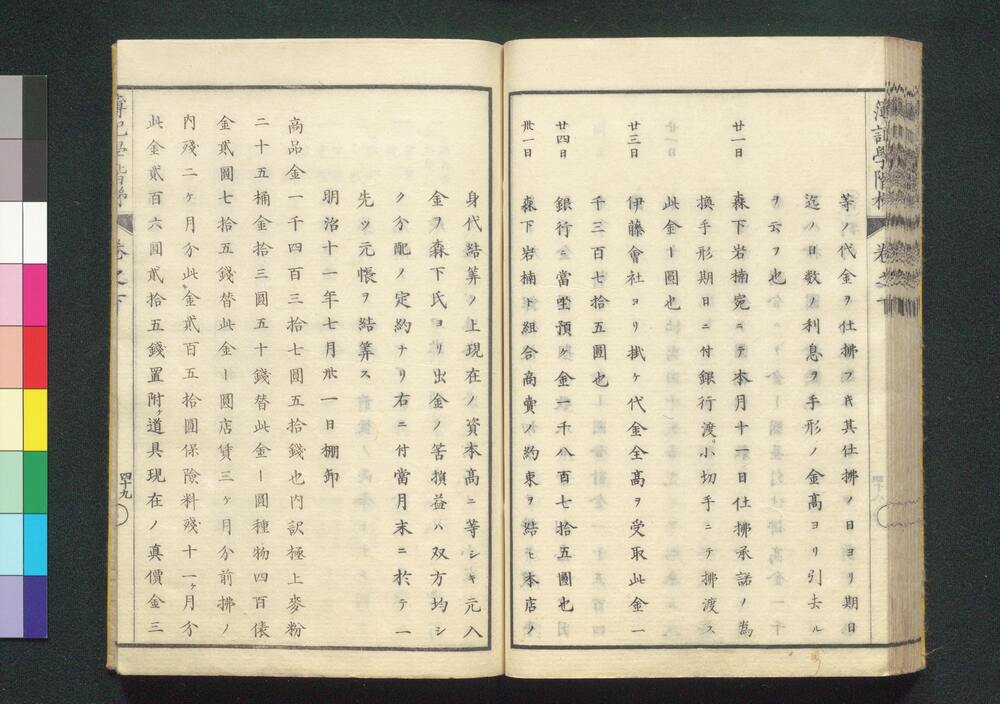 簿記學階梯 卷之下
等ノ代金ヲ仕拂フ𪜈其仕拂ノ日ヨリ期日
迄ノ日数ノ利息ヲ手形ノ金髙ヨリ引去ル
ヲ云フ也
廿一日 森下岩楠宛ニテ本月十 日仕拂承諾ノ為
換手形期日ニ付銀行渡リ小切手ニテ拂渡ス
此金ー圓也
廿三日 伊藤會社ヨリ掛ケ代金全髙ヲ受取此金一
千三百七拾五圓也
廿四日 銀行ニ當坐預ケ金一千八百七拾五圓也
卅一日 森下岩楠ト組合商賣ノ約束ヲ結ヒ本店ノ
身代結筭ノ上現在ノ資本髙ニ等シキ元入
金ヲ森下氏ヨリ出金ノ筈損益ハ双方均シ
ク分配ノ定約ナリ右ニ付當月末ニ於テ一
先ツ元帳ヲ結筭ス
明治十一年七月卅一日棚卸
商品金一千四百三拾七圓五拾錢也内訳極上麥粉
二十五桶金拾三圓五十錢替此金ー圓種物四百俵
金貳圓七拾五錢替此金ー圓店賃三ヶ月分前拂ノ
内殘二ヶ月分此金貳百五拾圓保險料殘十一ヶ月分
此金貳百六圓貳拾五錢置附ケ道具現在ノ真價金三
簿記學階梯 卷之下 四十九